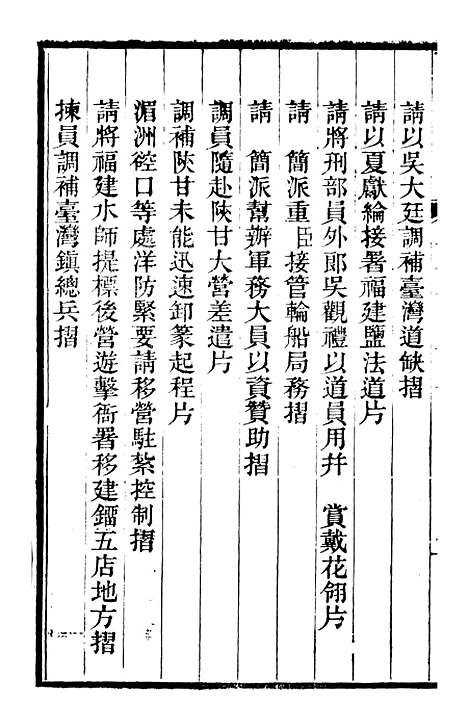 請以吳大廷調補臺灣道缺摺
請以夏獻綸接署福建鹽法道片
請將刑部員外郎吳觀禮以道員用幷　賞戴花翎片
請　簡派重臣接管輪船局務摺
請　簡派幫辦軍務大員以資贊助摺
調員隨赴陝甘大營差遣片
調補陝甘未能迅速卸篆起程片
湄洲硿口等處洋防緊要請移營駐紮控制摺
請將福建水師提標後營遊擊衙署移建鐂五店地方摺
揀員調補臺灣鎮總兵摺